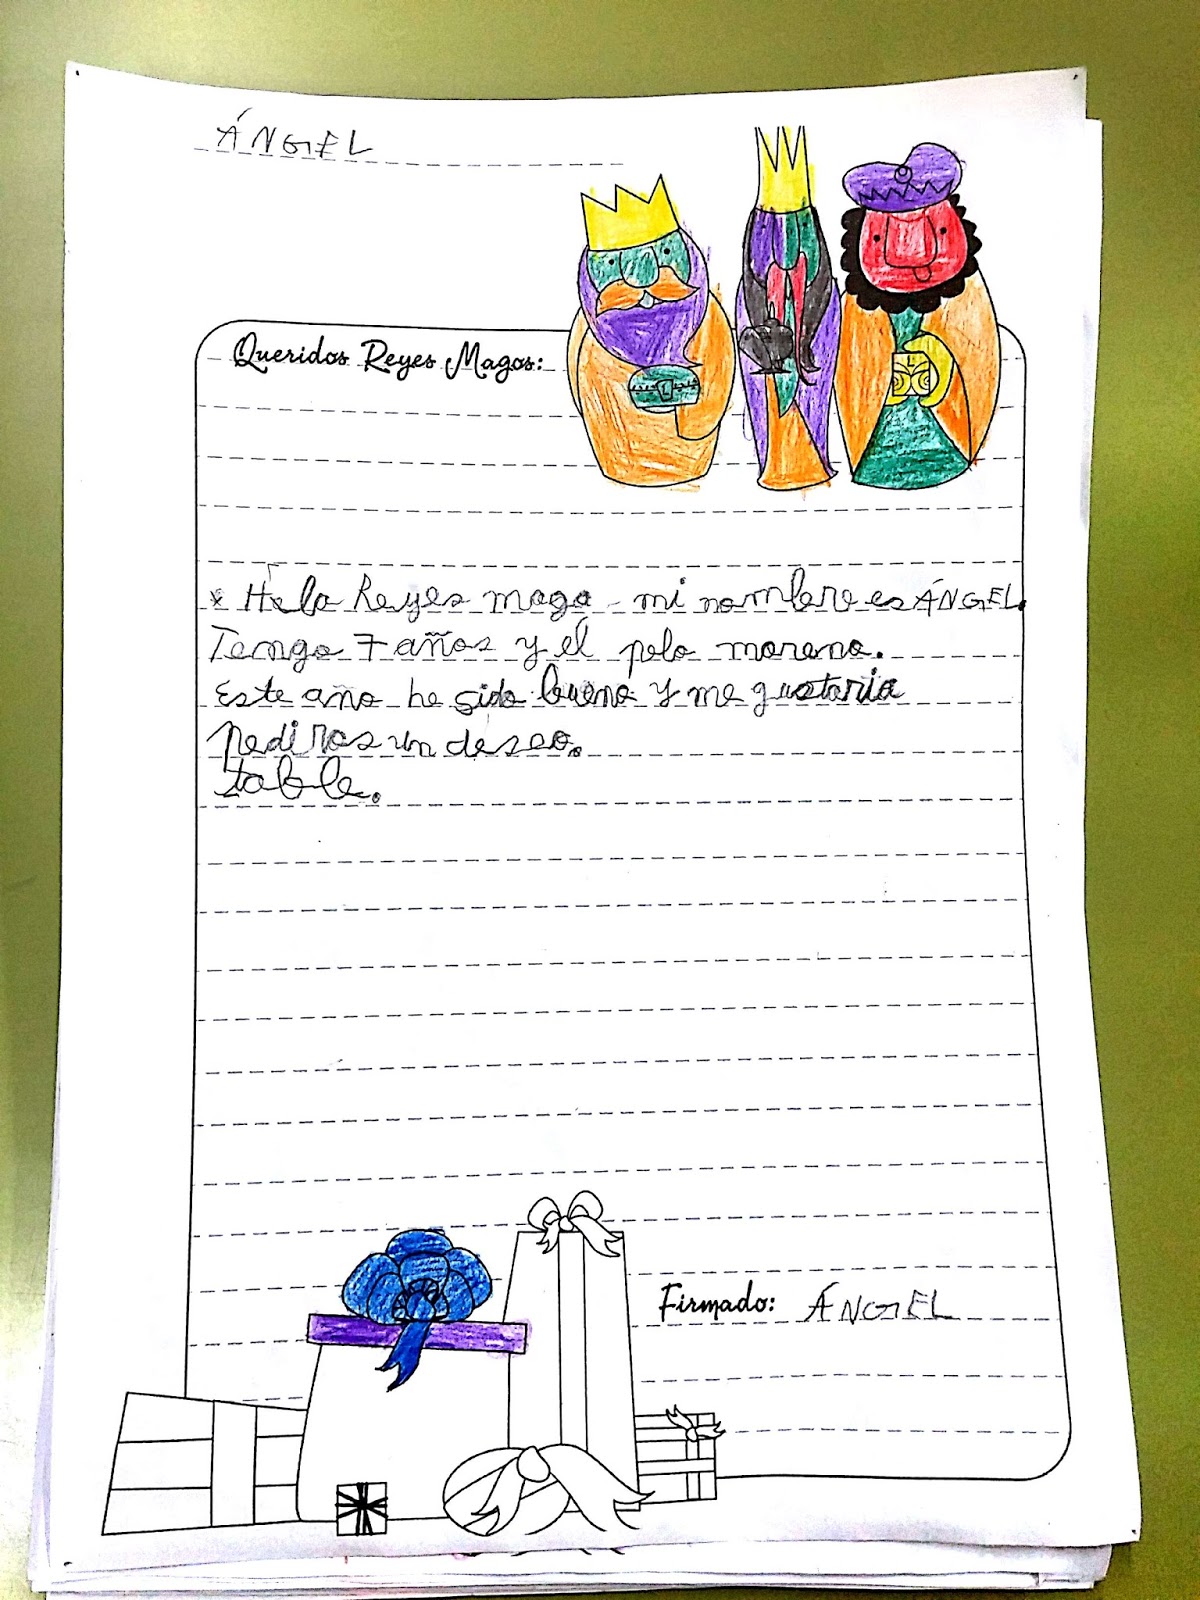 ÁNGEL
Queridos Reyes Magos:
* Hola Reyes mago mi nombre es ÁNGEL.
Tengo 7 años y él pelo moreno.
Este año he sido bueno y me gustaria
pediros un deseo.
table.
Firmado: ÁNGEL